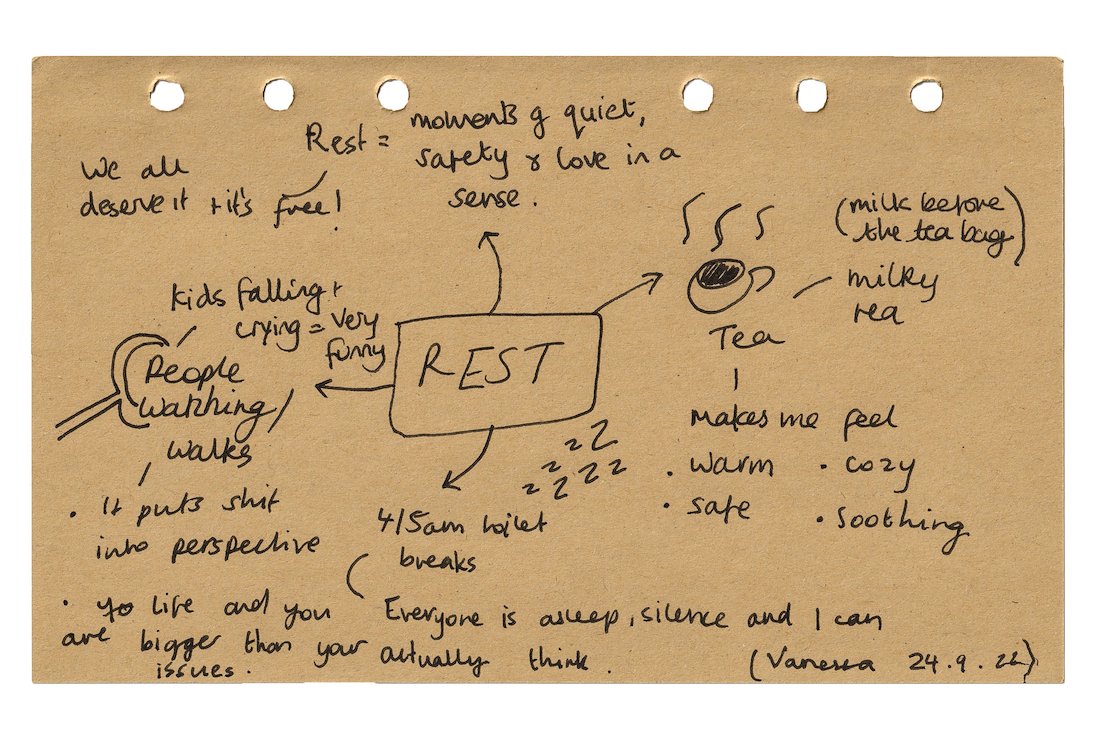 Rest = moments of quiet,
safety & love in a
sense.
We all
deserve it + it's free!
(milk before
the tea bag)
milky
tea
Tea
makes me feel
• warm • cozy
• safe • soothing
Kids falling +
crying = very
funny
REST
People
watching/
walks
• It puts shit
into perspective
• life and you
are bigger than your
issues.
zz
zzzz
4/5am toilet
breaks
Everyone is asleep, silence and I can
actually think.
(Vanessa 24.9.22)